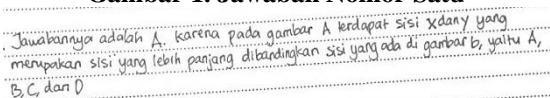 Gambar 1. Jawaban Nomor Satu
. Jawabannya adalah A. karena pada gambar A terdapat sisi x dan y yang
merupakan sisi yang lebih panjang dibandingkan sisi yang ada di gambar b, yaitu A,
B, C, dan D